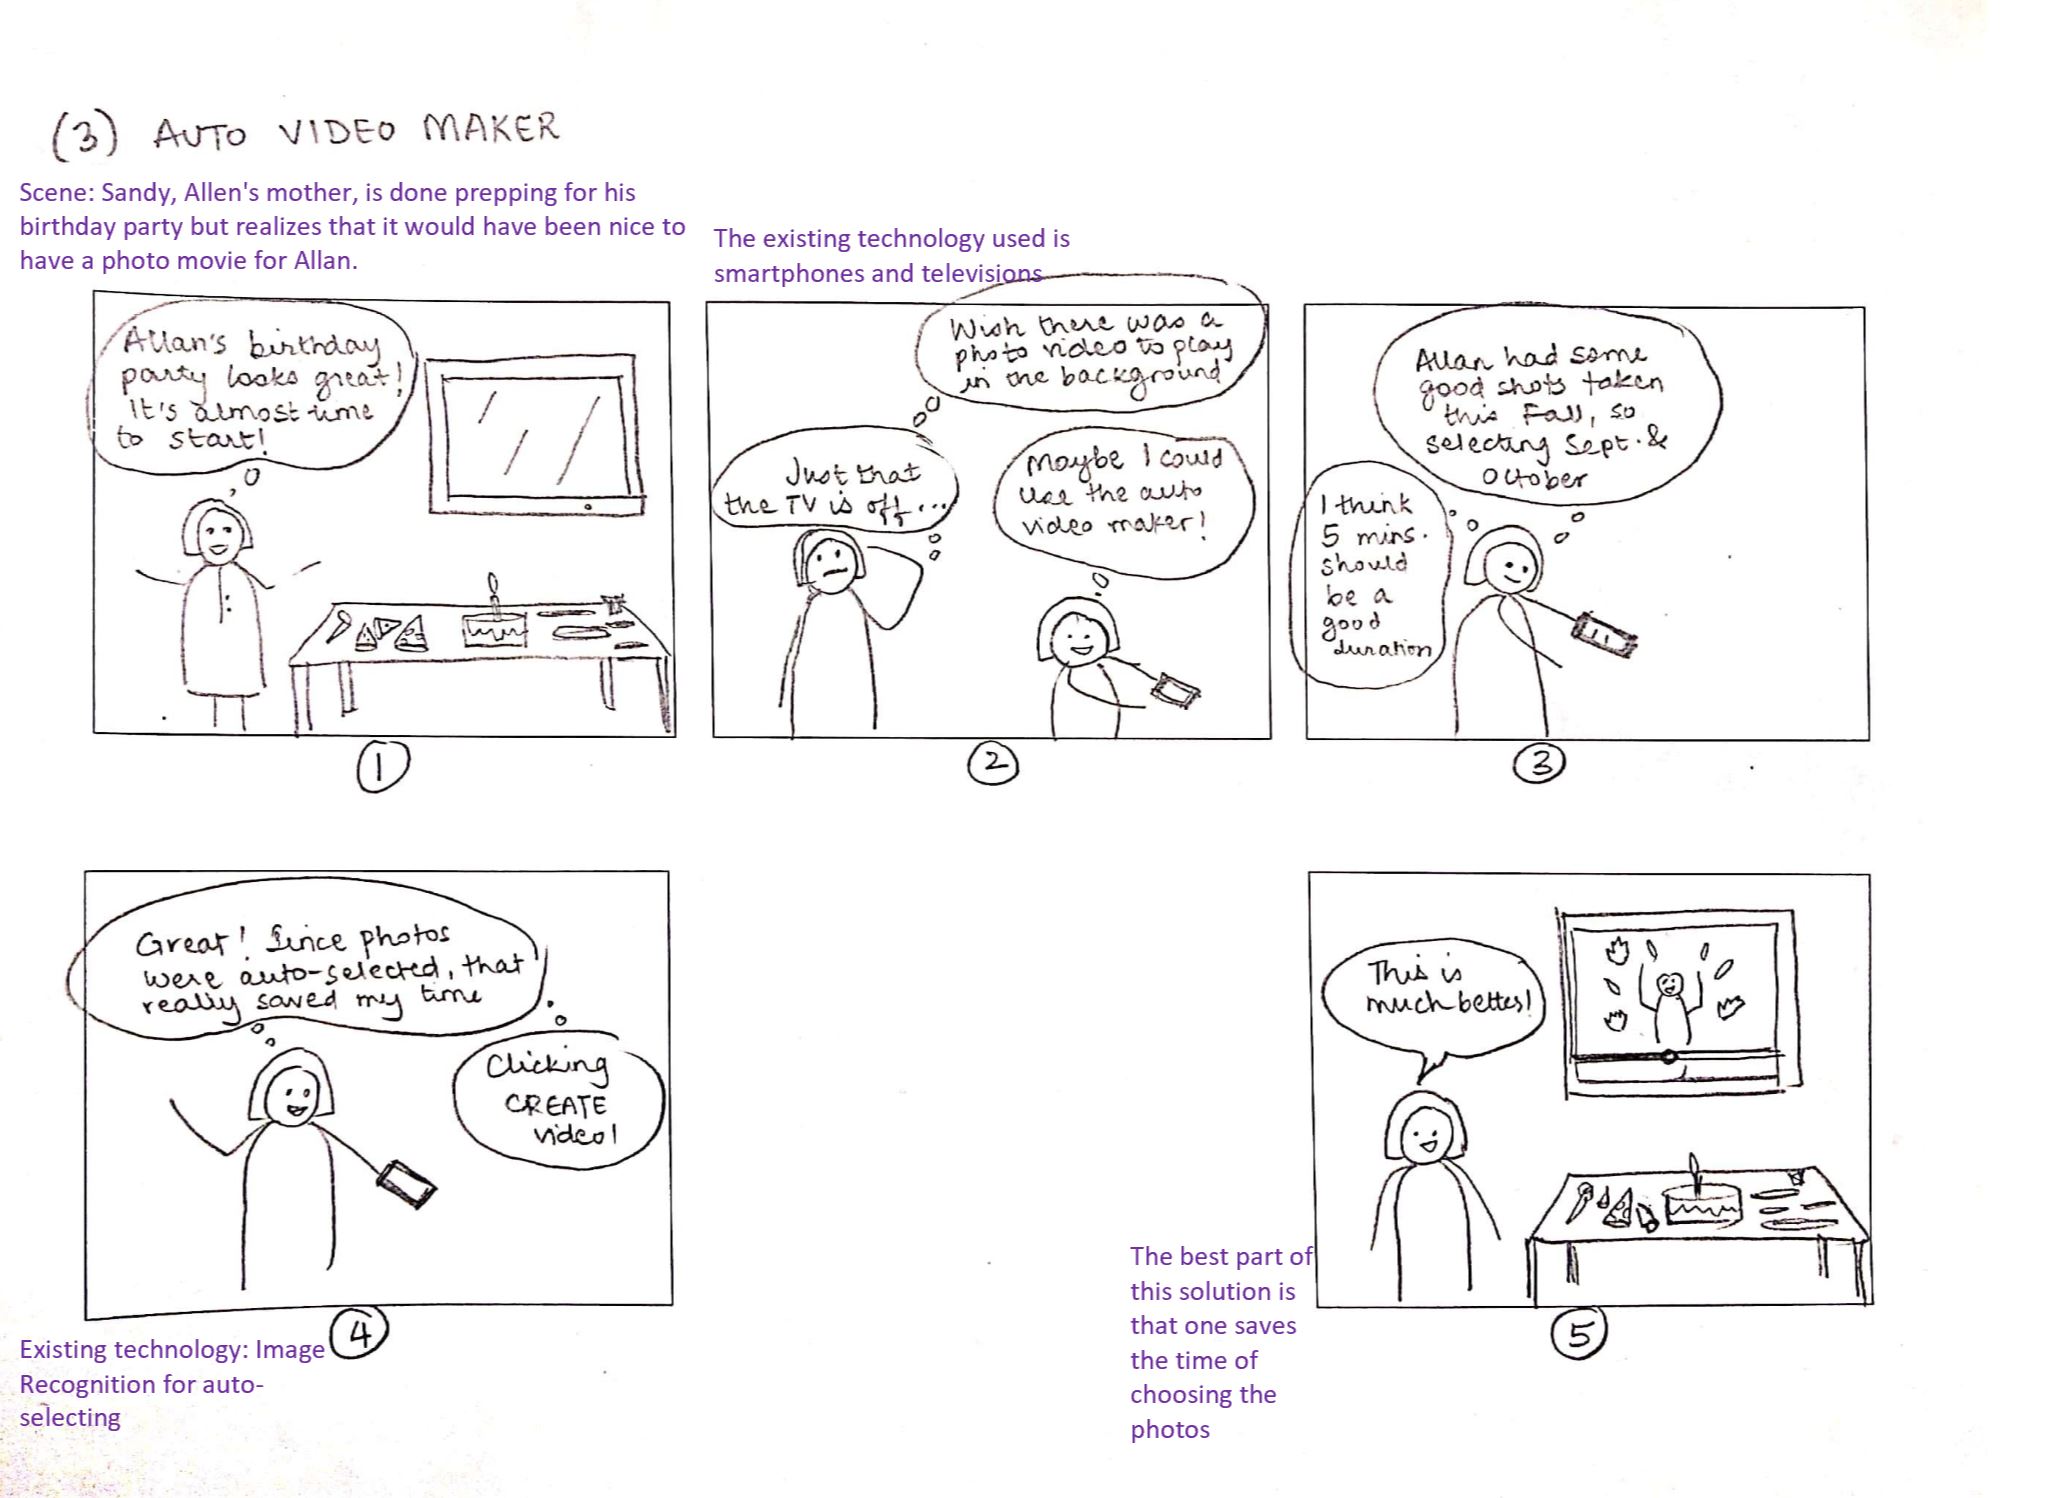 (3) AUTO VIDEO MAKER
Scene: Sandy, Allen's mother, is done prepping for his
birthday party but realizes that it would have been nice to
have a photo movie for Allan.
The existing technology used is
smartphones and televisions
Allan's birthday
party looks great!
It's almost time
to start!
1
Just that
the TV is off...
Wish there was a
photo video to play
in the background
Maybe I could
use the auto
video maker!
2
Allan had some
good shots taken
this Fall, so
selecting Sept. &
October
I think
5 mins.
should
be a
good
duration
3
Great! Since photos
were auto-selected, that
really saved my time
Clicking
CREATE
video!
4
Existing technology: Image
Recognition for auto-
selecting
This is
much better!
5
The best part of
this solution is
that one saves
the time of
choosing the
photos